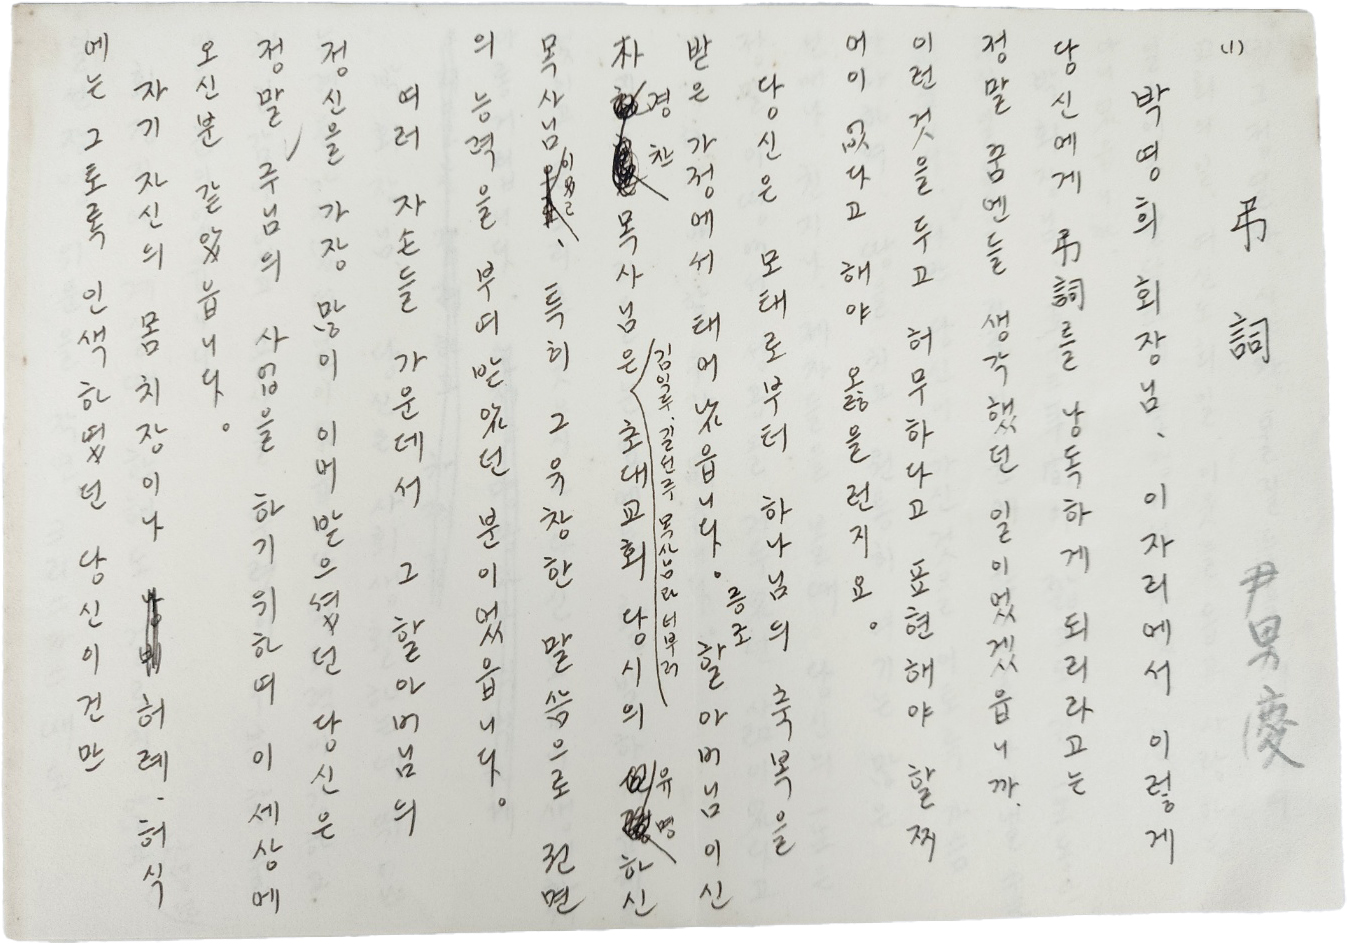 (1)
弔詞
尹男慶
박영희 회장님. 이자리에서 이렇게
당신에게 弔詞를 낭독하게 되리라고는
정말 꿈엔들 생각했던 일이었겠읍니까.
이런것을 두고 허무하다고 표현해야 할찌
어이없다고 해야 옳을런지요.
당신은 모태로부터 하나님의 축복을
받은 가정에서 태어났읍니다. 증조 할아버님이신
朴경찬 목사님은 김익두. 길선주 목사님과 더부러 초대교회 당시의 유명하신
목사님이였고. 특히 그 유창한 말씀으로 전면
의 능력을 부여받았던 분이었읍니다.
여러 자손들 가운데서 그 할아버님의
정신을 가장 많이 이어 받으셨던 당신은
정말 주님의 사업을 하기위하여 이 세상에
오신분 같았읍니다.
자기자신의 몸치장이나 허례. 허식
에는 그토록 인색하였던 당신이건만